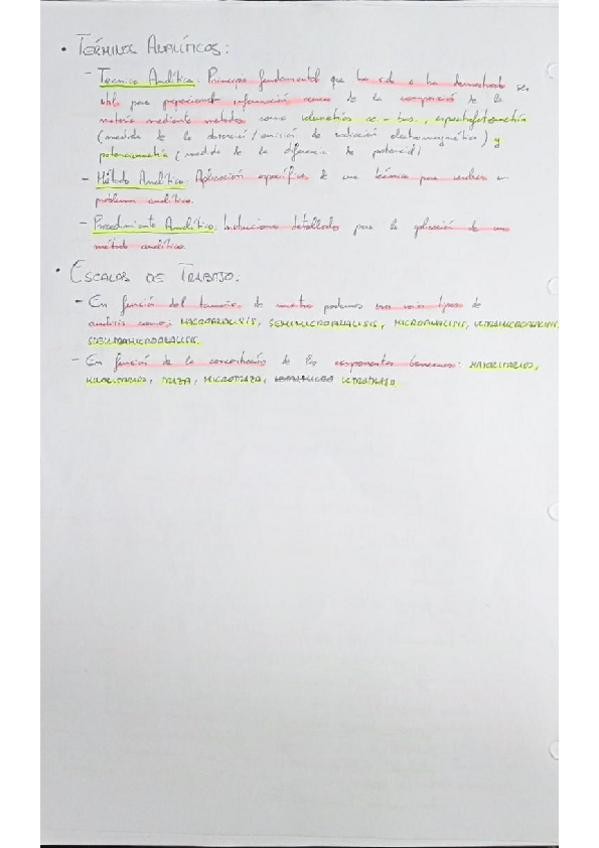 • TÉRMINOS ANALÍTICOS:
- Técnica Analítica: Principio fundamental que ha sido o ha demostrado ser
útil para proporcionar información acerca de la composición de la
materia mediante métodos como volumetrías ac. - bas., espectrofotometría
(medida de la absorción/emisión de radiación electromagnética) y
potenciometría (medida de la diferencia de potencial)
- Método Analítico: Aplicación específica de una técnica para resolver un
problema analítico.
- Procedimiento Analítico: Instrucciones detalladas para la aplicación de un
método analítico.
• ESCALAS DE TRABAJO:
- En función del tamaño de muestra podemos varios tipos de
análisis como: MACROANÁLISIS, SEMIMICROANÁLISIS, MICROANÁLISIS, ULTRAMICROANÁLISIS,
SUBULTRAMICROANÁLISIS.
- En función de la concentración de los componentes tenemos: MAYORITARIOS,
MINORITARIOS, TRAZA, MICROTRAZA, ULTRATRAZA.